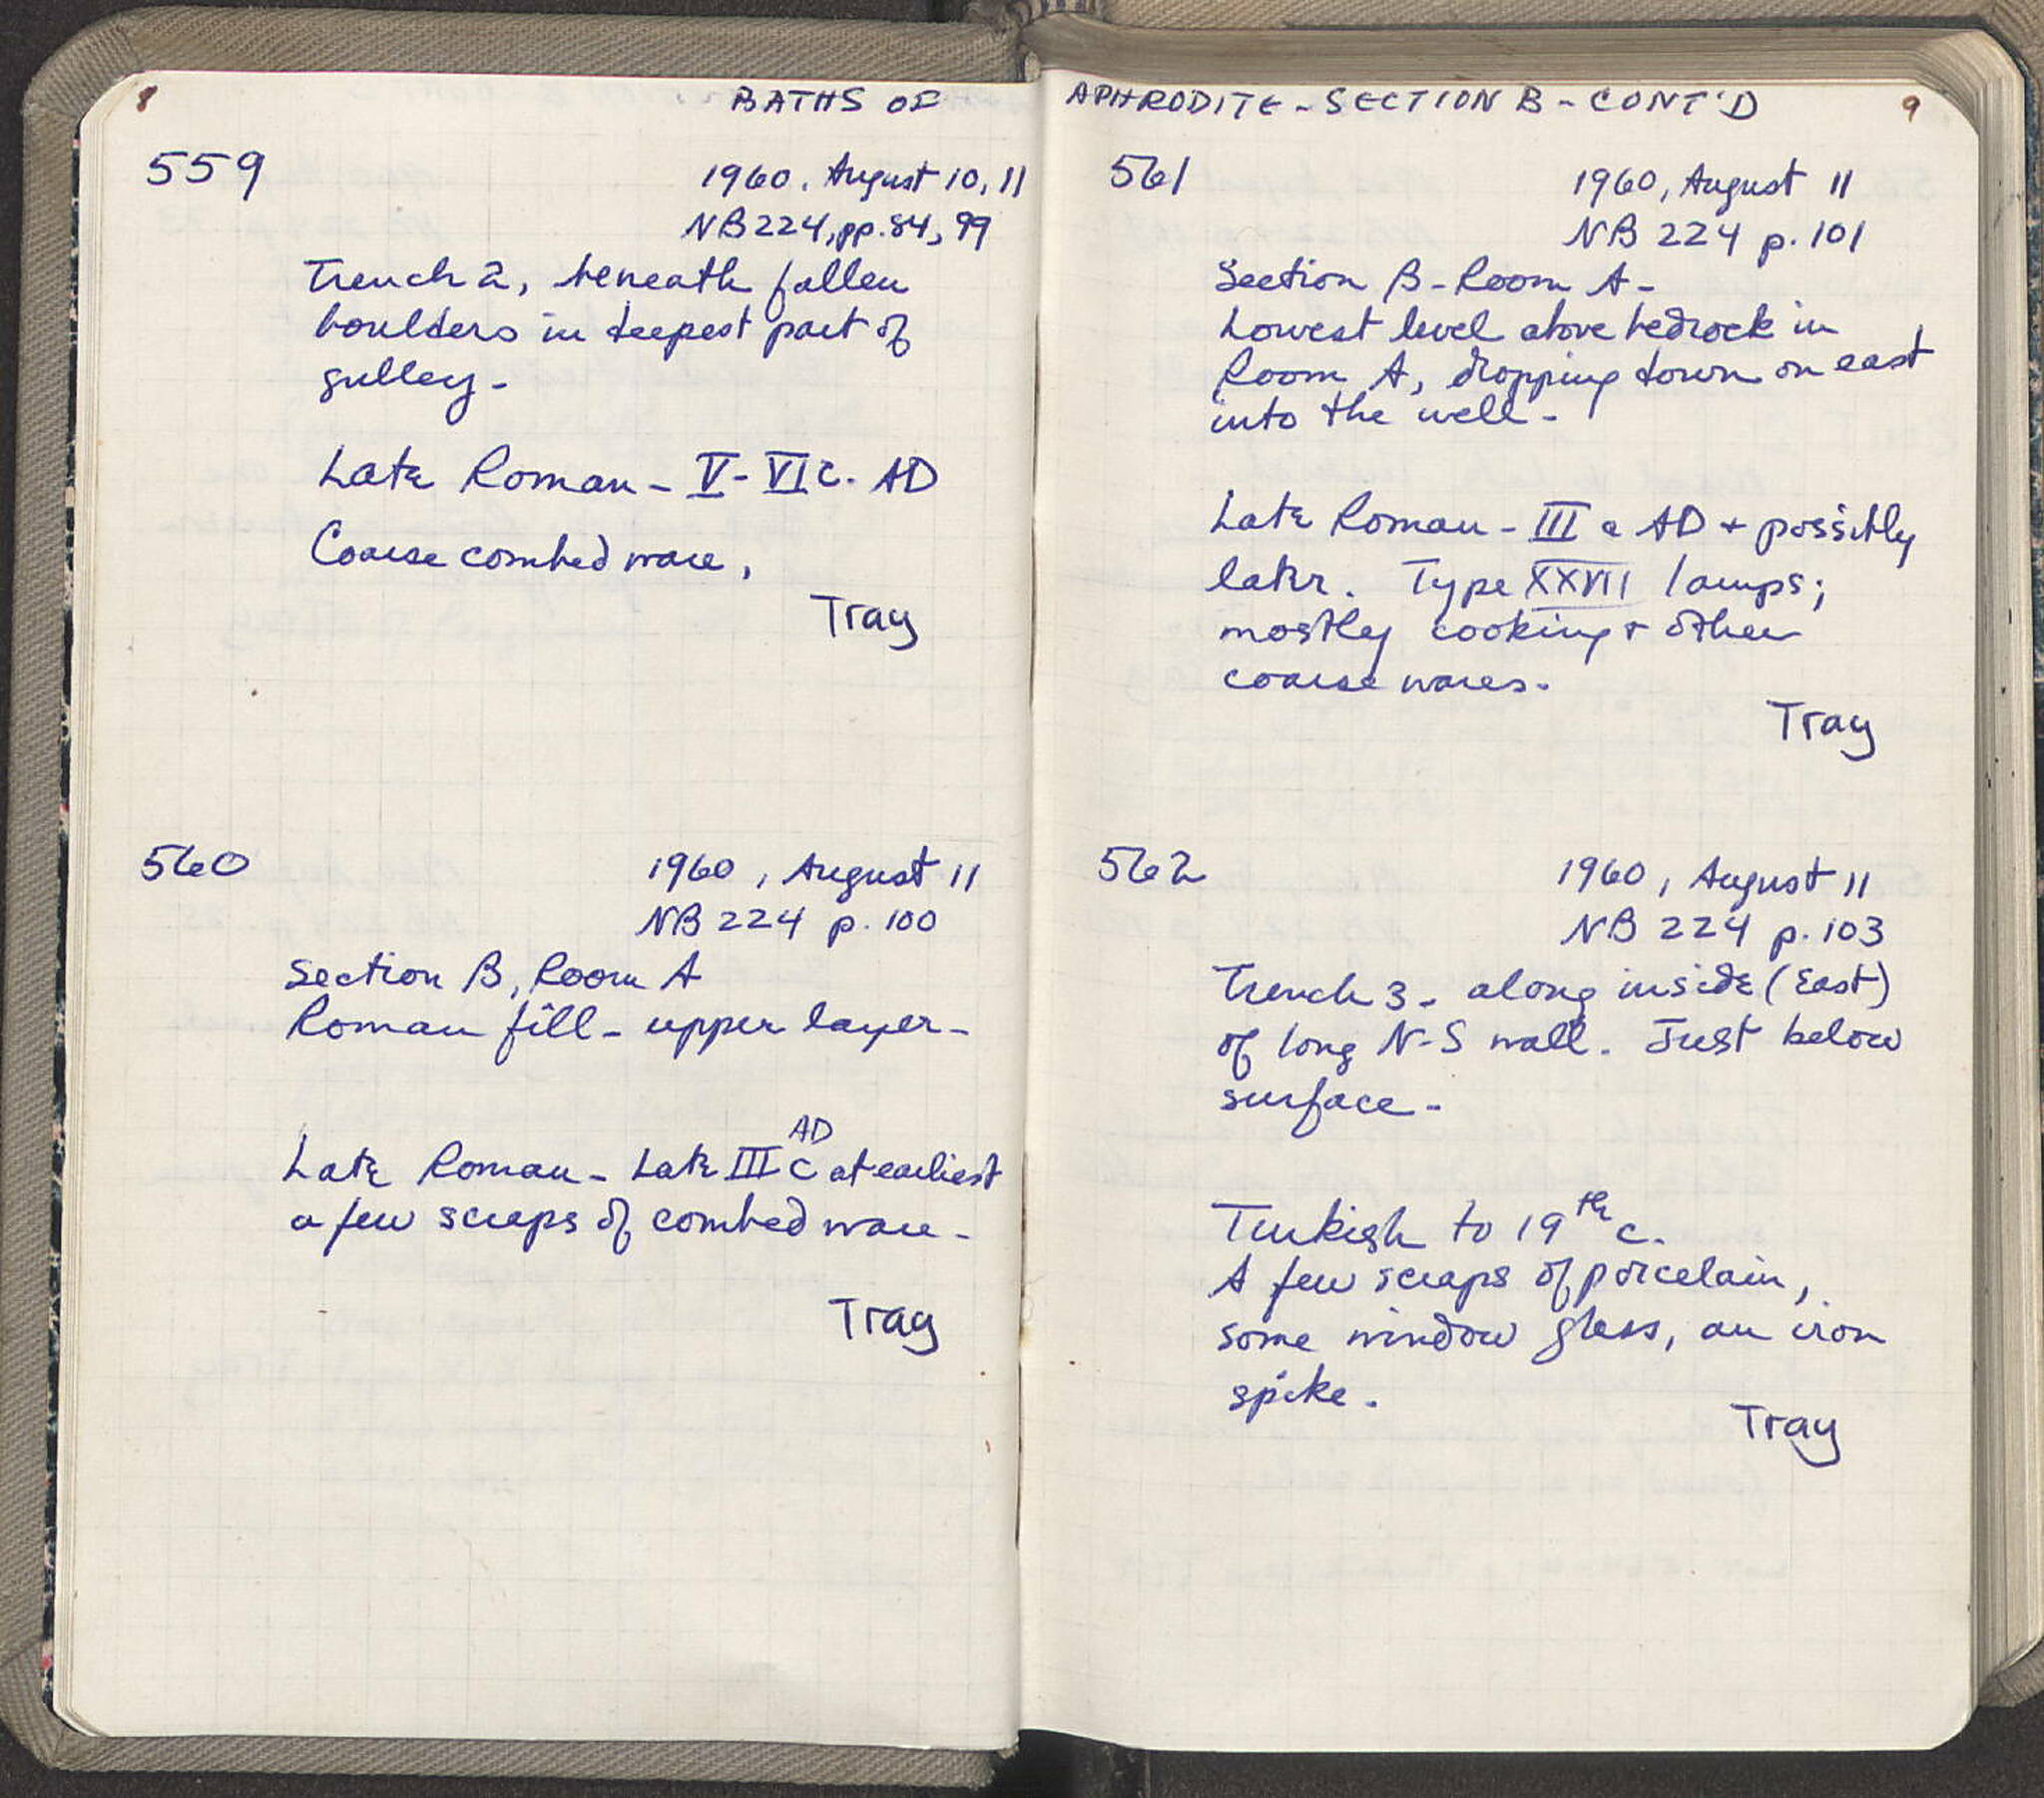 8
BATHS OF
559
1960, August 10, 11
NB 224, pp. 84, 99
Trench 2, beneath fallen
boulders in deepest part of
gulley -
Late Roman - V - VI c. AD
Coarse combed ware,
Tray
560
1960, August 11
NB 224 p. 100
Section B, Room A
Roman fill - upper layer -
AD
Late Roman - Late III c at earliest
a few scraps of combed ware -
Tray
APHRODITE - SECTION B - CONT'D
9
561
1960, August 11
NB 224 p. 101
Section B - Room A -
Lowest level above bedrock in
Room A, dropping down on east
into the well -
Late Roman - III c AD + possibly
later. Type XXVII lamps;
mostly cooking + other
coarse wares.
Tray
562
1960, August 11
NB 224 p. 103
Trench 3 - along inside (East)
of long N-S wall. Just below
surface -
Turkish to 19th c.
A few scraps of porcelain,
some window glass, an iron
spike.
Tray